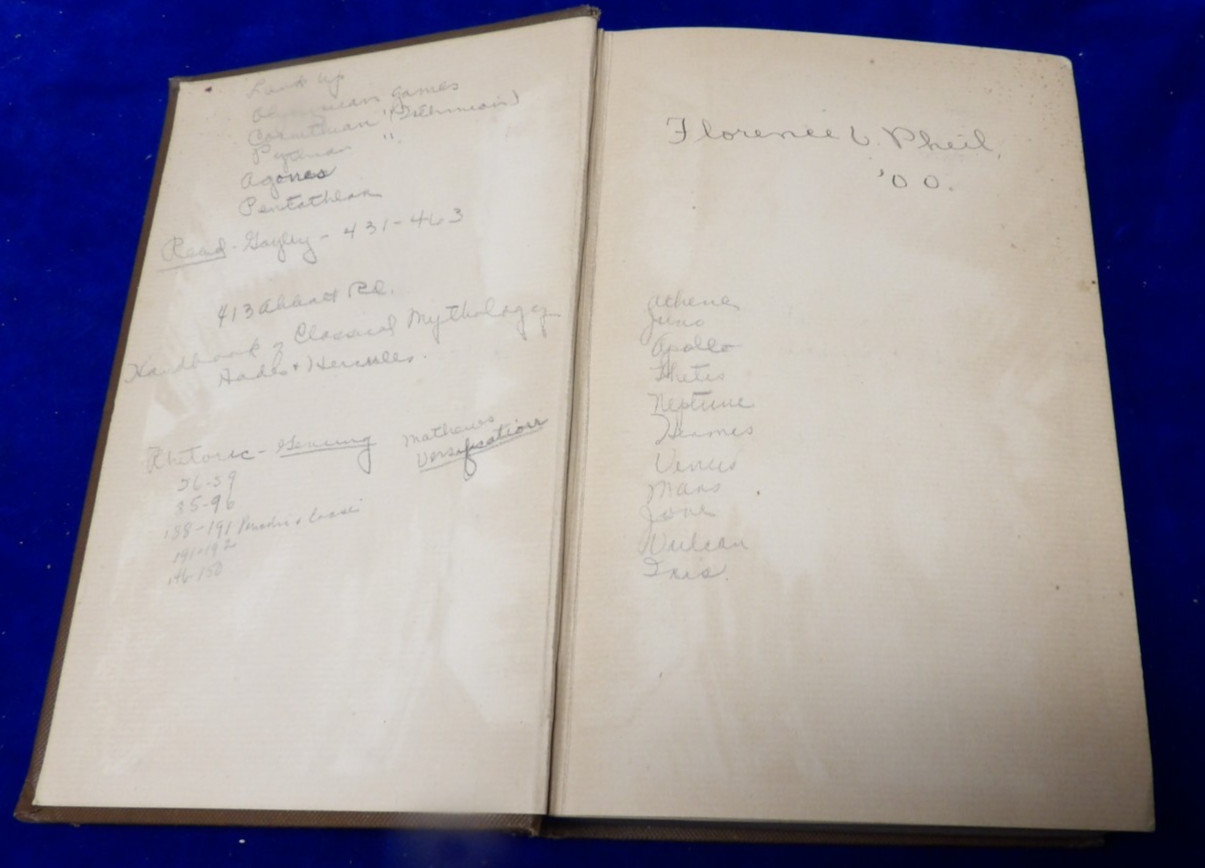 Look up
Olympian games
Corinthian " (Isthmian)
Pythian "
Agones
Pentathlon
Read - Gayley - 431-463
413 Abbott Pl.
Handbook of Classical Mythology
Hades + Hercules.
Rhetoric - Genung Mathews
Versification
56-59
85-96
188-191 Periodic + Loose
191-192
146-150
Florence V. Pheil,
'00.
Athena
Juno
Apollo
Thetis
Neptune
Hermes
Venus
Mars
Jove
Vulcan
Iris.